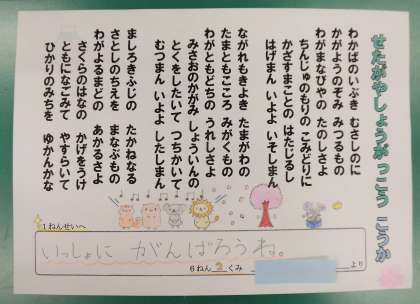 せたがやしょうがっこう こうか
わかばのいぶき むさしのに
かがようのぞみ みつるもの
わがまなびやの たのしさよ
ちんじゅのもりの こみどりに
かざすまことの はたじるし
はげまん いよよ いそしまん
ながれもきよき たまがわの
たまともこころ みがくもの
わがともどちの うれしさよ
みさおのかがみ しょういんの
とくをしたいて つちかいて
むつまん いよよ したしまん
ましろきふじの たかねなる
さとしのちえを まなぶもの
わがよるまどの あかるさよ
さくらのはなの かげをうけ
ともになごみて やすらいて
ひかりのみちを ゆかんかな
1ねんせいへ
いっしょに がんばろうね。
6ねん 2 くみ より